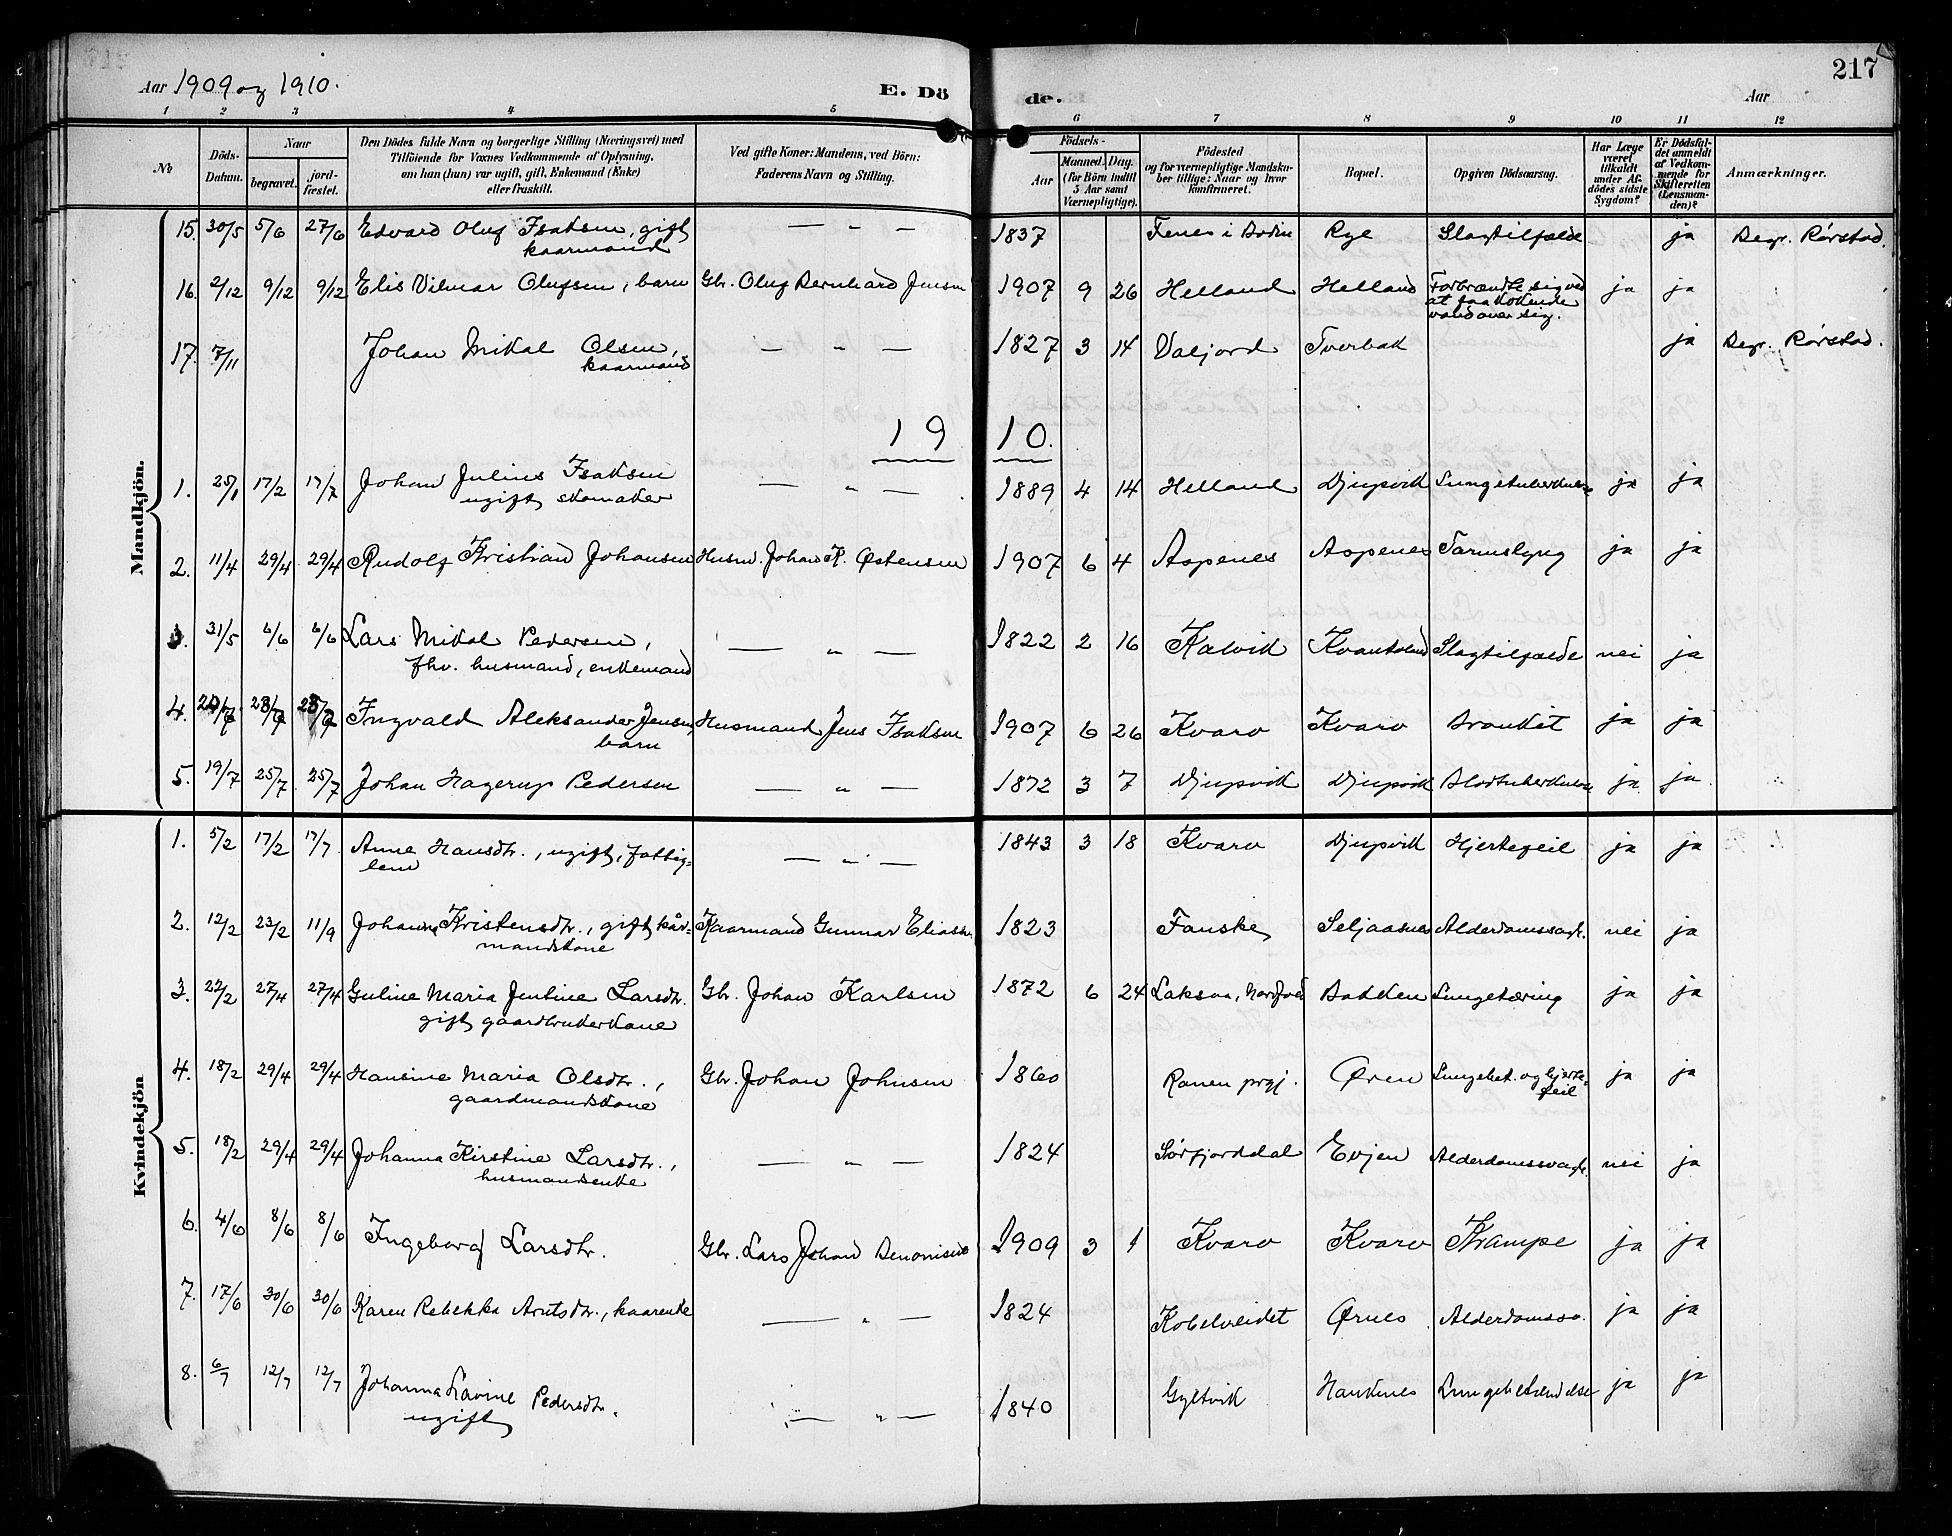 217
Aar 1909 og 1910.
E. Döde.
Aar
1 2 3 4 5 6 7 8 9 10 11 12
No
Döds-Datum.
Naar
begravet.
jord-fæstet.
Den Dödes fulde Navn og borgerlige Stilling (Næringsvei) med
Tilföiende for Voxnes Vedkommende af Oplysning,
om han (hun) var ugift, gift, Enkemand (Enke)
eller fraskilt.
Ved gifte Koner: Mandens, ved Börn:
Faderens Navn og Stilling.
Födsels-
Aar
Maaned. Dag.
(for Börn indtil
5 Aar samt
Værnepligtige).
Födested
og for værnepligtige Mandska-
ber tillige: Naar og hvor
konfirmeret.
Bopæl.
Opgiven Dödsaarsag.
Har Læge
været
tilkaldt
under Af-
dödes sidste
Sygdom?
Er Dödsfal-
det anmeldt
af Vedkom-
mende for
Skifteretten
(Lensman-
den)?
Anmærkninger.
Mandkjön.
15. 30/5 5/6 27/6 Edvard Oluf Isaksen, gift — „ — 1837 Fenes i Bodin Rye Slagtilfælde ja Begr. Rørstad.
kaarmand
16. 2/12 9/12 9/12 Elis Vilmar Olufsen, barn Gbr. Oluf Bernhard Jensen 1907 9 26 Helland Helland Forbrændte sig ved ja ja
at faa kokende
vand over sig.
17. 7/11 Johan Mikal Olsen, — „ — 1827 3 14 Valjord Tverbak ja Begr. Rørstad.
kaarmand
1910.
1. 25/1 17/2 17/7 Johan Julius Isaksen — „ — 1889 4 14 Helland Djupvik Lungetuberkulose ja ja
ugift skomaker
2. 11/4 29/4 29/4 Rudolf Kristian Johansen Husm. Johan K. Østensen 1907 6 4 Aspenes Aspenes Tarmslyng ja ja
3. 31/5 6/6 6/6 Lars Mikal Pedersen, — „ — 1822 2 16 Kalvik Kvantoland Slagtilfælde nei ja
fhv. husmand, enkemand
4. Ingvald Aleksander Jensen, Husmand Jens Isaksen 1907 6 26 Kvarv Kvarv Bronkit ja ja
barn
5. 19/7 25/7 25/7 Johan Hagerup Pedersen — „ — 1872 3 7 Djupvik Djupvik Blodtuberkulose ja ja
Kvindekjön
1. 5/2 17/2 17/7 Anne Hansdtr., ugift, fattig- — „ — 1843 3 18 Kvarv Djupvik Hjertefeil ja ja
lem
2. 12/2 23/2 11/9 Johanna Kristensdtr., gift kår- Kaarmand Gunnar Eliassen 1823 Fauske Seljaasnes Alderdomssvagh. nei ja
mandskone
3. 22/2 27/4 27/4 Guline Maria Jentine Larsdtr. Gbr. Johan Karlsen 1872 6 24 Laksaa, Nordfold Bakken Lungetæring ja ja
gift gaardbrukerkone
4. 18/2 29/4 29/4 Hansine Maria Olsdtr., Gbr. Johan Johnsen 1860 Ranen prgj. Øren Lungebet. og hjerte- ja ja
feil
gaardmandskone
5. 18/2 29/4 29/4 Johanna Kirstine Larsdtr., — „ — 1824 Sørfjorddal Evjen Alderdomssvagh. nei ja
husmandsenke
6. 4/6 8/6 8/6 Ingeborg Larsdtr. Gbr. Lars Johan Benonisen 1909 3 1 Kvarv Kvarv Krampe ja ja
7. 17/6 30/6 30/6 Karen Rebekka Arntsdtr., kaarenke — „ — 1824 Kobelveidet Ørnes Alderdomssv. ja ja
8. 6/7 12/7 12/7 Johanna Lavine Pedersdtr. — „ — 1840 Gyltvik Hankenes Lungebetændelse ja ja
ugift